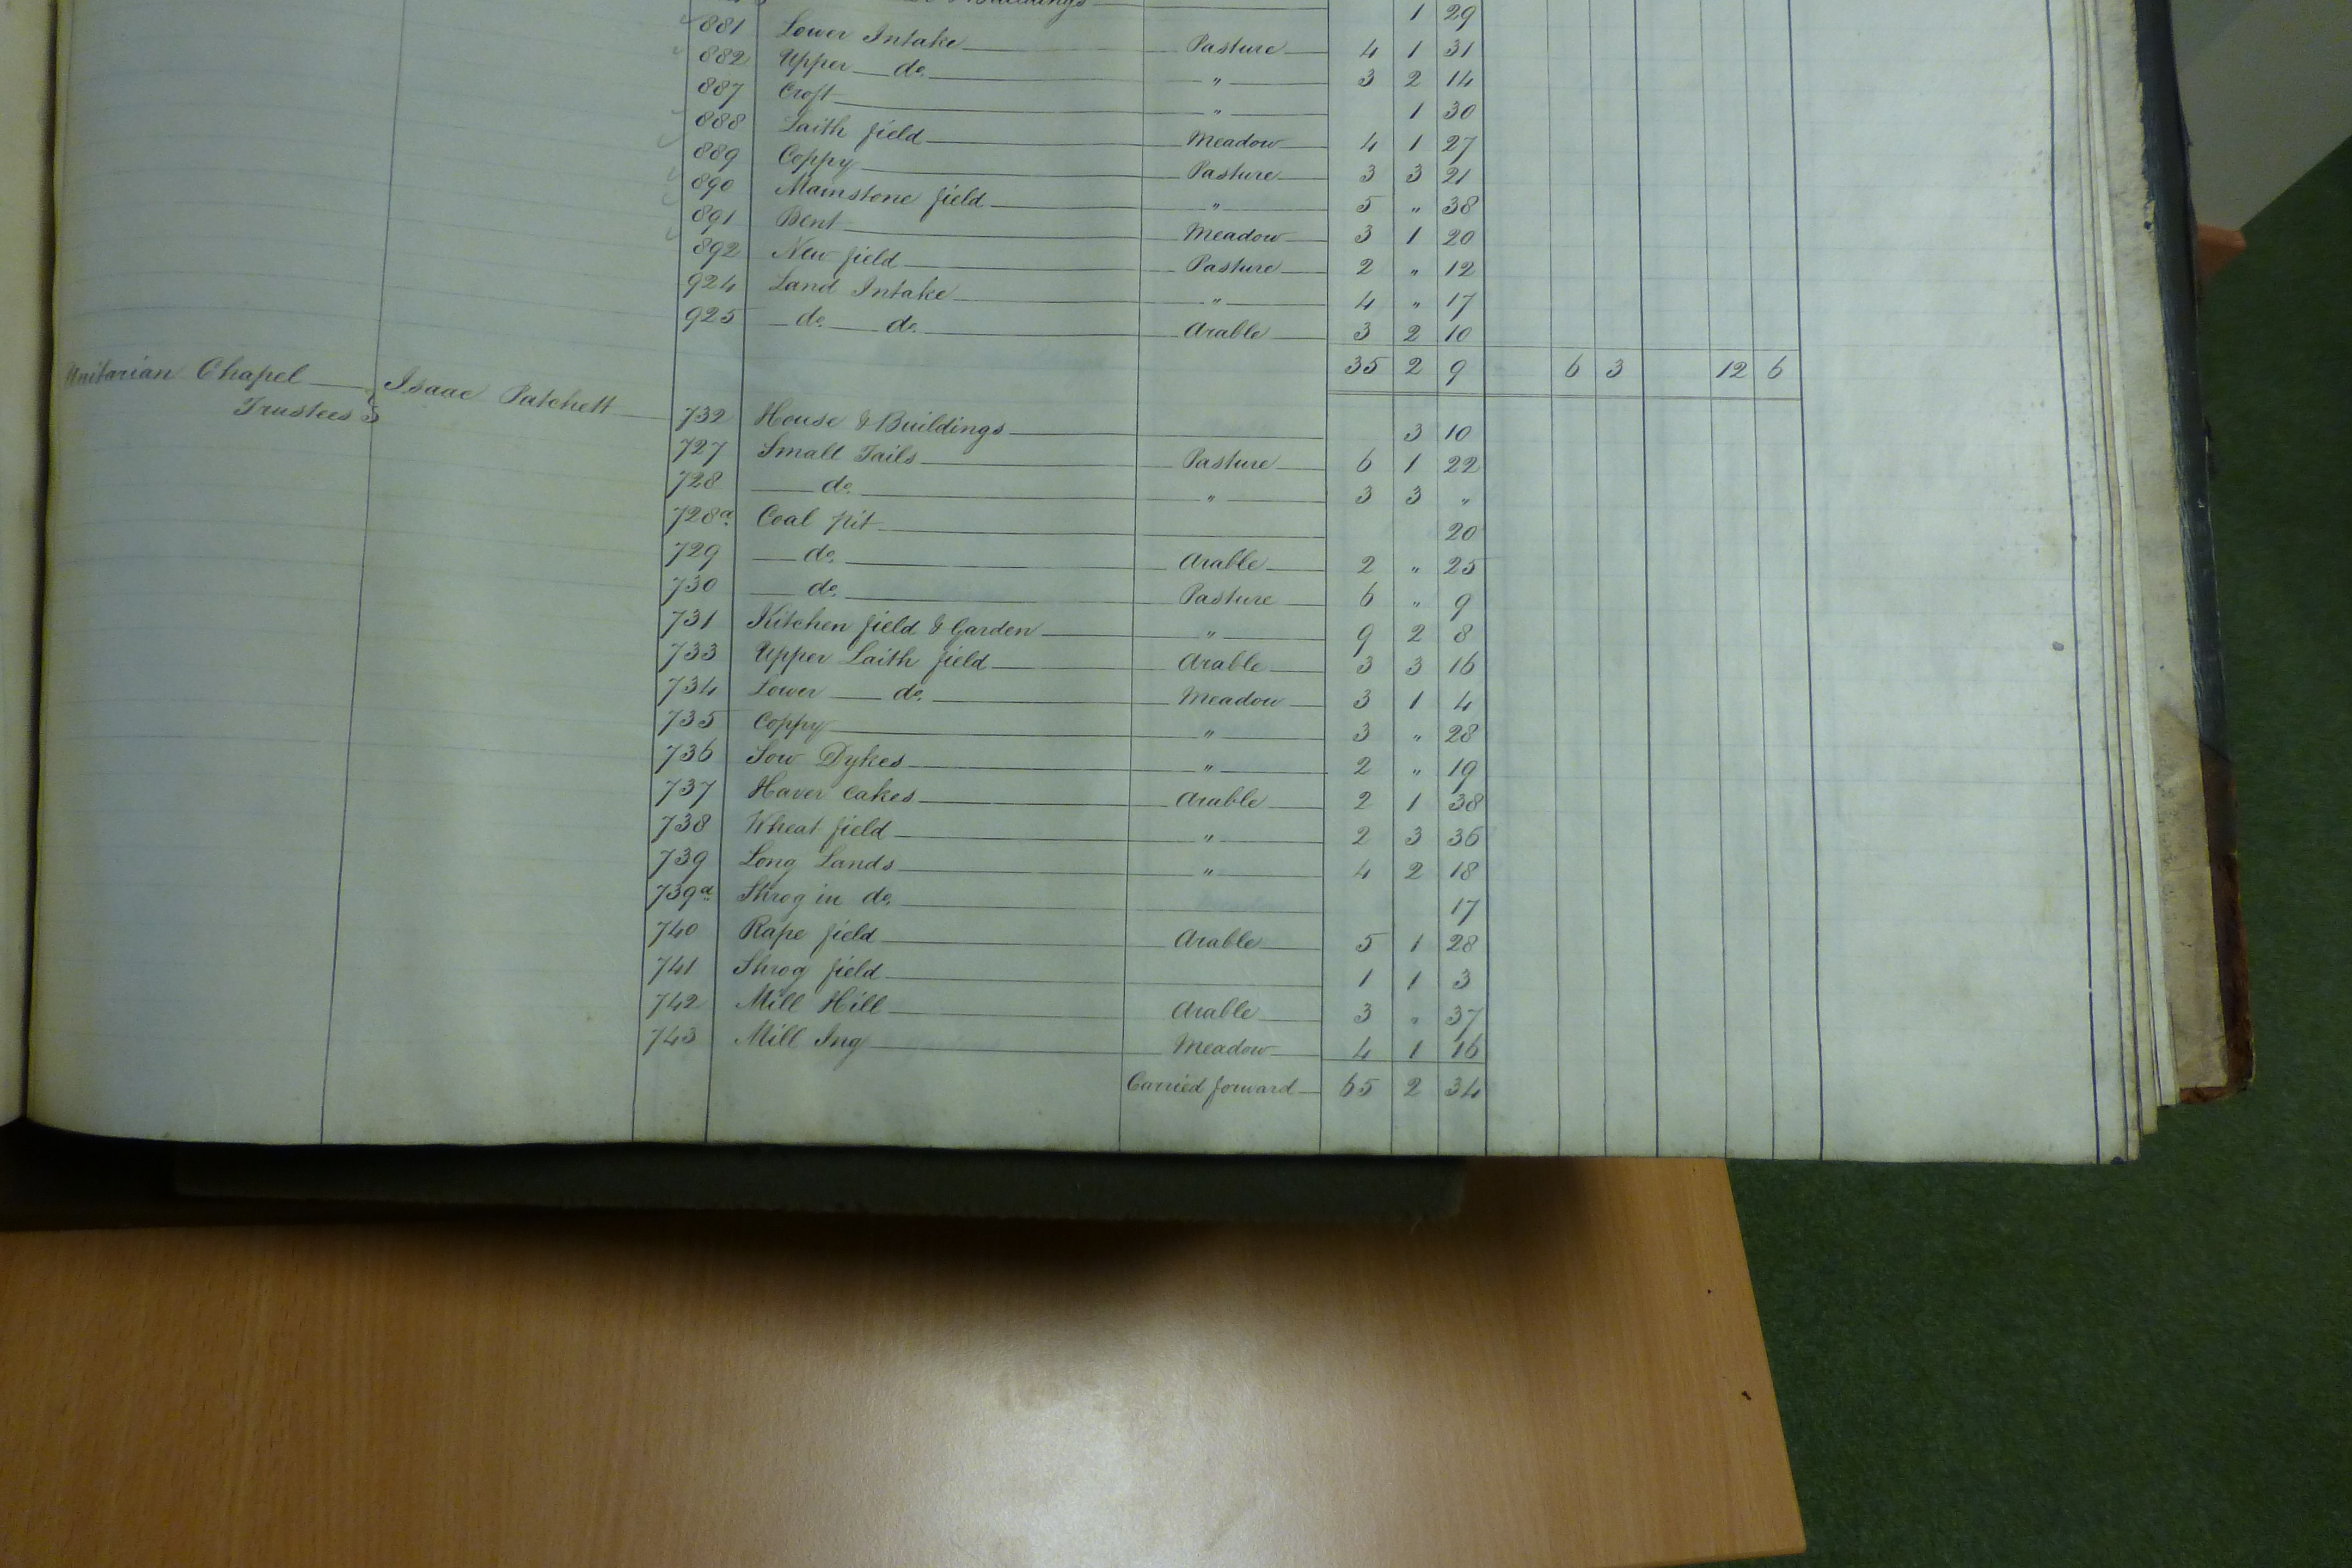 & Buildings 1 29
881 Lower Intake Pasture 4 1 31
882 Upper do. " 3 2 14
887 Croft " 1 30
888 Laith field Meadow 4 1 27
889 Coppy Pasture 3 3 21
890 Mainstone field " 5 " 38
891 Bent Meadow 3 1 20
892 New field Pasture 2 " 12
924 Land Intake " 4 " 17
925 do. do. Arable 3 2 10
35 2 9 6 3 12 6
Unitarian Chapel Isaac Patchett
Trustees
732 House & Buildings 3 10
727 Small Tails Pasture 6 1 22
728 do. " 3 3 "
728a. Coal pit 20
729 do. Arable 2 " 25
730 do. Pasture 6 " 9
731 Kitchen field & Garden " 9 2 8
733 Upper Laith field Arable 3 3 16
734 Lower do. Meadow 3 1 4
735 Coppy " 3 " 28
736 Sow Dykes " 2 " 19
737 Haver cakes Arable 2 1 38
738 Wheat field " 2 3 36
739 Long Lands " 4 2 18
739a Shrog in do. 17
740 Rape field Arable 5 1 28
741 Shrog field 1 1 3
742 Mill Hill Arable 3 " 37
743 Mill Ing Meadow 4 1 16
Carried forward 65 2 34